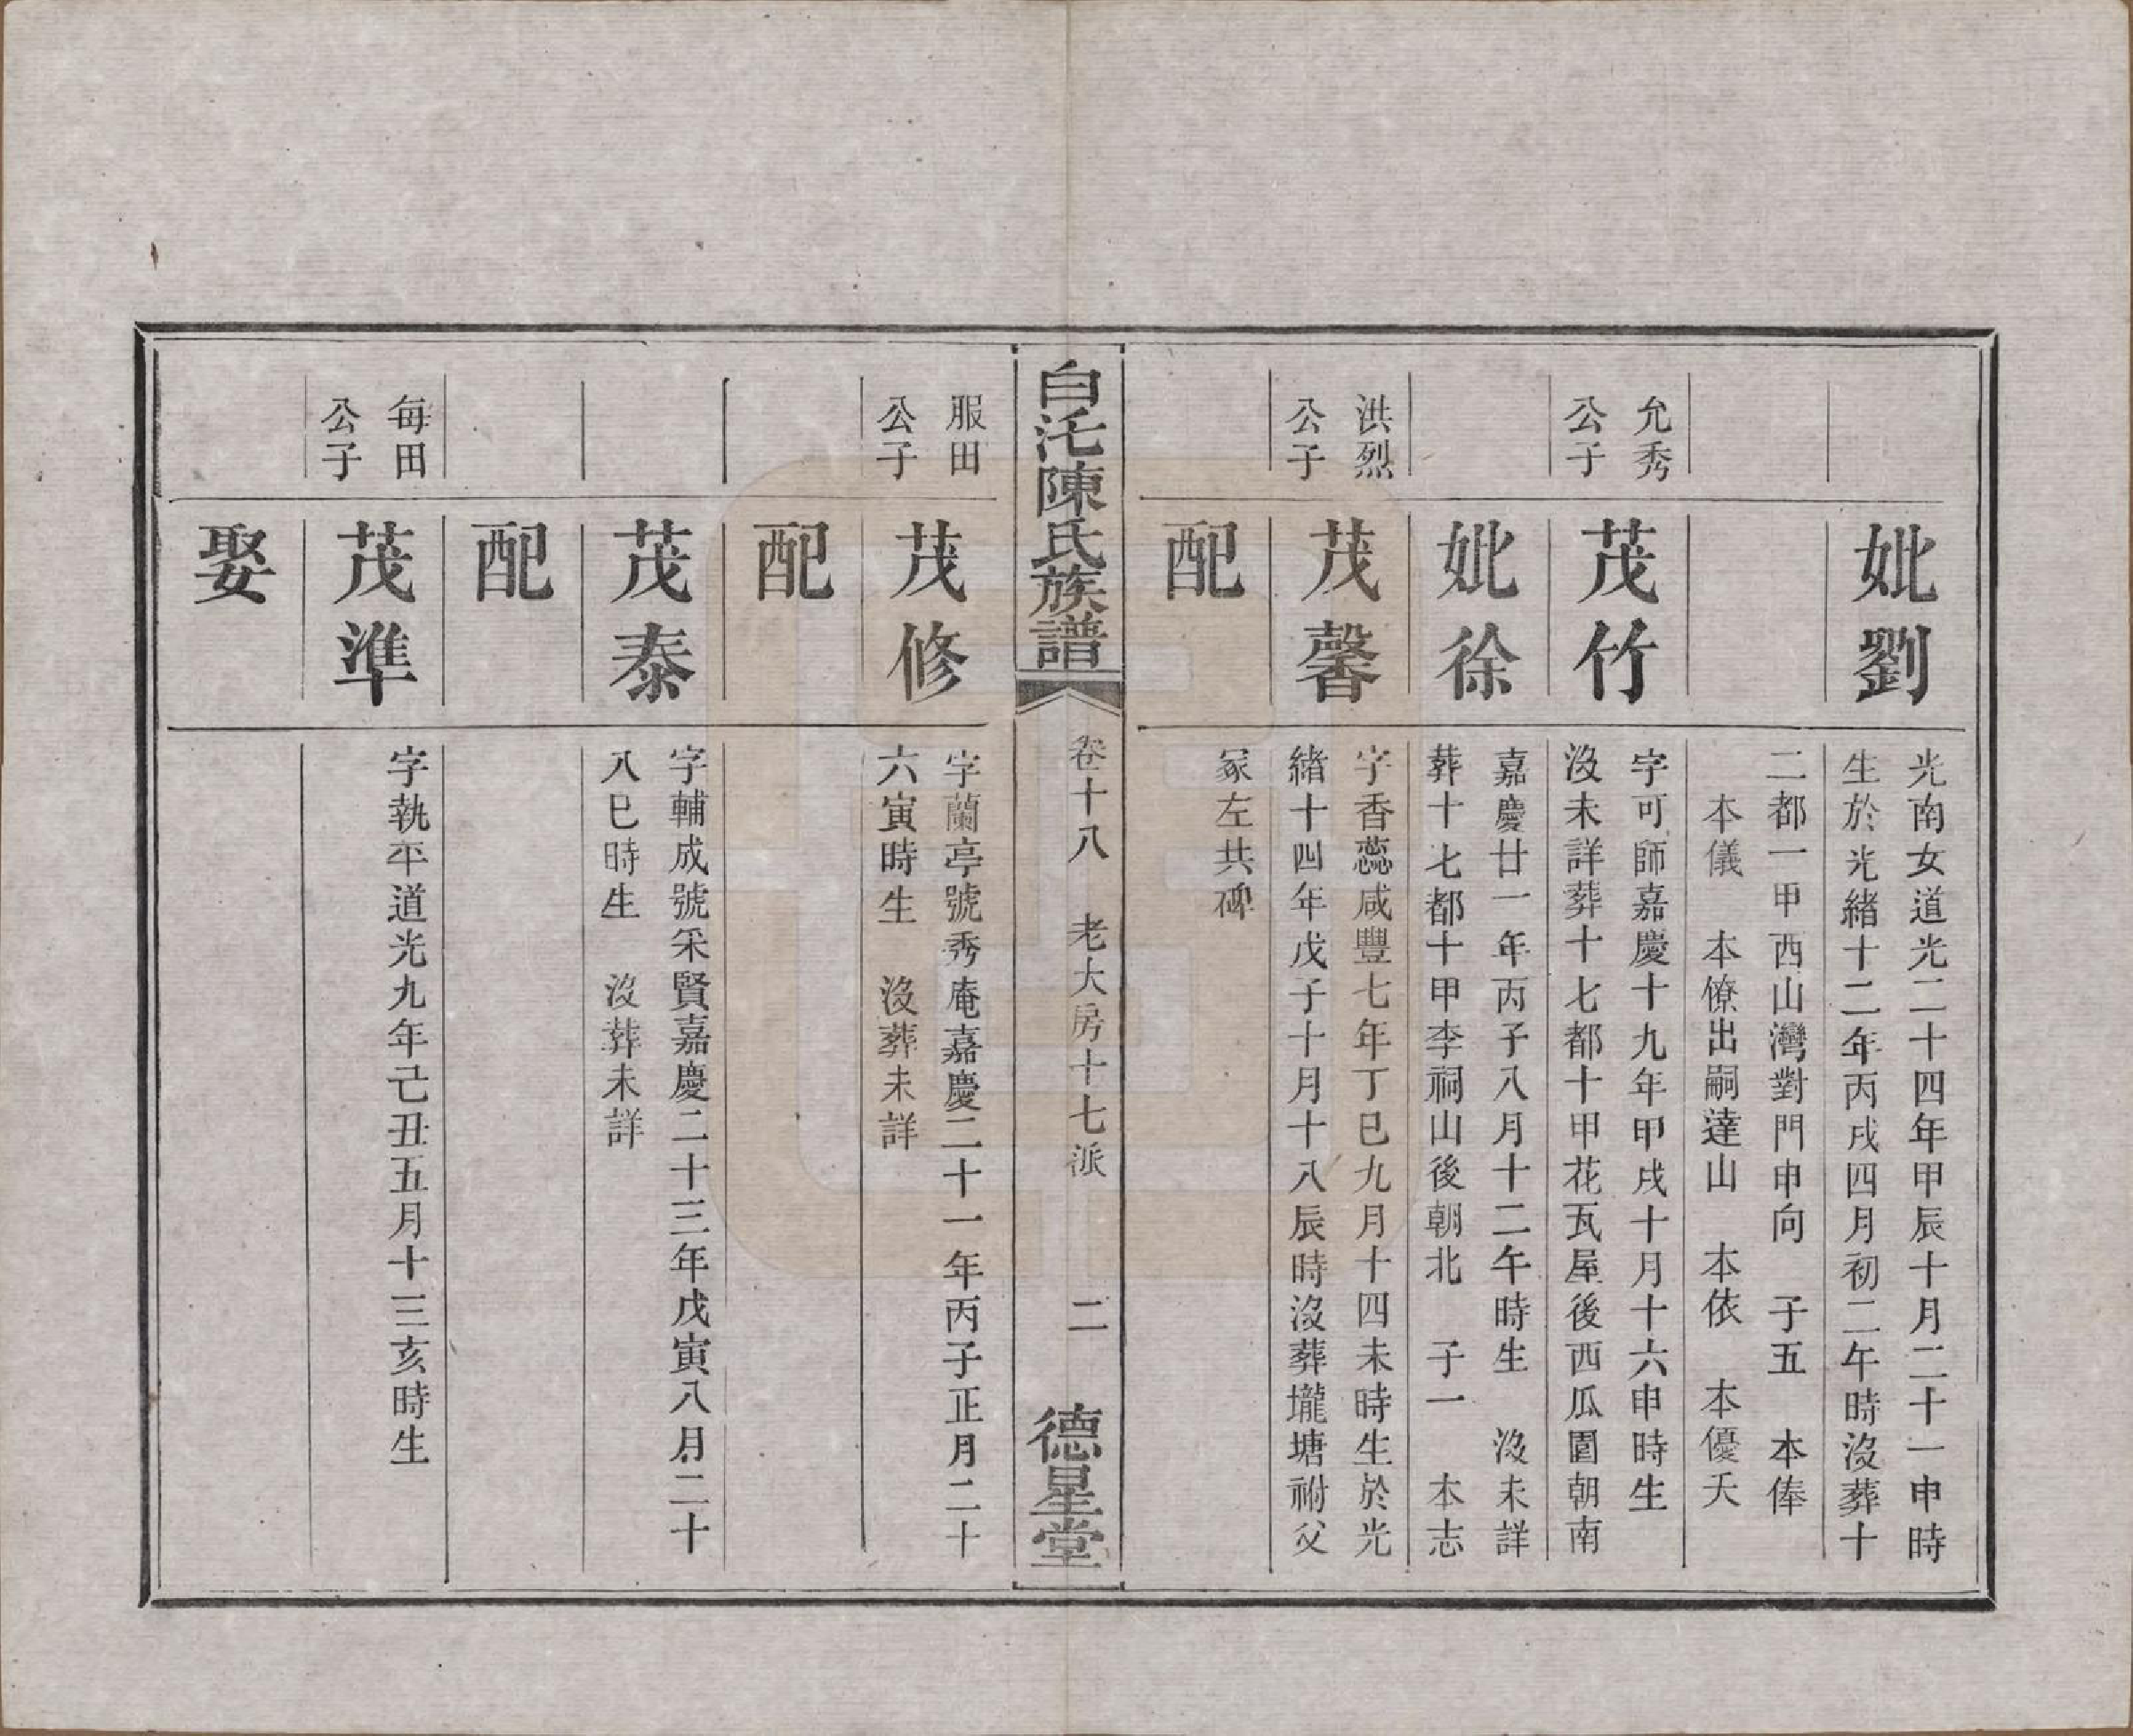 妣劉
光南女道光二十四年甲辰十月二十一申時
生於光緒十二年丙戌四月初二午時沒葬十
二都一甲西山灣對門申向 子五 本俸
本儀 本僚出嗣達山 本依 本優夭
允秀
公子
茂竹
字可師嘉慶十九年甲戌十月十六申時生
沒未詳葬十七都十甲花瓦屋後西瓜園朝南
妣徐
嘉慶廿一年丙子八月十二午時生 沒未詳
葬十七都十甲李祠山後朝北 子一 本志
洪烈
公子
茂馨
字香蕊咸豐七年丁巳九月十四未時生於光
緒十四年戊子十月十八辰時沒葬壠塘祔父
冢左共碑
配
白沱陳氏族譜
卷十八 老大房十七派 二
德星堂
服田
公子
茂修
字蘭亭號秀庵嘉慶二十一年丙子正月二十
六寅時生 沒葬未詳
配
茂泰
字輔成號采賢嘉慶二十三年戊寅八月二十
八巳時生 沒葬未詳
配
每田
公子
茂準
字執平道光九年己丑五月十三亥時生
娶